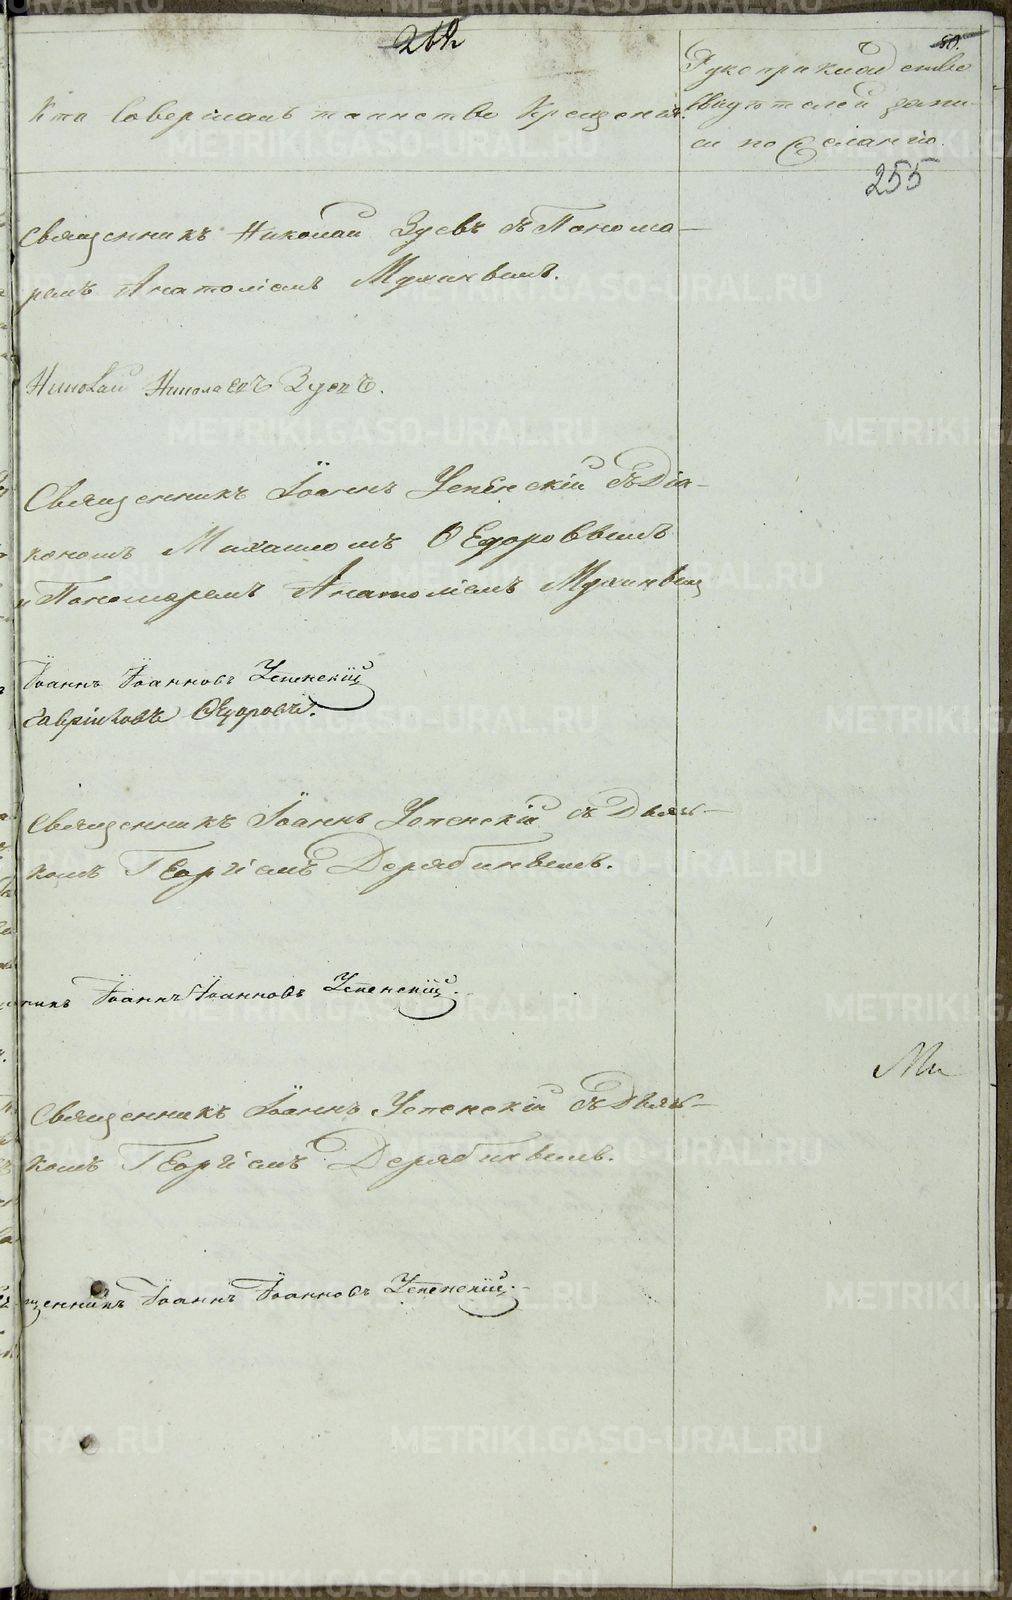 262
80.
Кто Совершалъ таинство Крещенія.
Рукоприкладство
Свидѣтелей запи-
си по желанію.
255
Священникъ Николай Зуевъ съ Понома-
ремъ Анатоліемъ
Николай Николаевъ Зуевъ.
Священникъ Іоаннъ Успенскій съ Діа-
кономъ Михаиломъ Ѳедоровымъ
и Пономаремъ Анатоліемъ
Іоаннъ Іоанновъ Успенскій
Гавріиловъ Ѳедоровъ.
Священникъ Іоаннъ Успенскій съ Дьяч-
комъ Георгіемъ Дерябинымъ.
никъ Іоаннъ Іоанновъ Успенскій.
Ми
Священникъ Іоаннъ Успенскій съ Дьяч-
комъ Георгіемъ Дерябинымъ.
щенникъ Іоаннъ Іоанновъ Успенскій.
METRIKI.GASO-URAL.RU